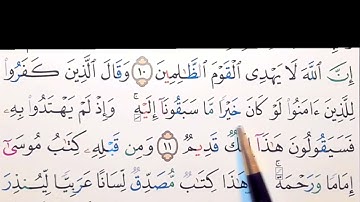 إِنَّ اللَّهَ لَا يَهْدِى الْقَوْمَ الظَّالِمِينَ ١٠ وَقَالَ الَّذِينَ كَفَرُوا
لِلَّذِينَ ءَامَنُوا لَوْ كَانَ خَيْرًا مَّا سَبَقُونَا إِلَيْهِ ۚ وَإِذْ لَمْ يَهْتَدُوا بِهِۦ
فَسَيَقُولُونَ هَٰذَا قَدِيمٌ ١١ وَمِن قَبْلِهِۦ كِتَٰبُ مُوسَىٰٓ
إِمَامًا وَرَحْمَةً ۚ هَٰذَا كِتَٰبٌ مُّصَدِّقٌ لِّسَانًا عَرَبِيًّا لِّيُنذِرَ